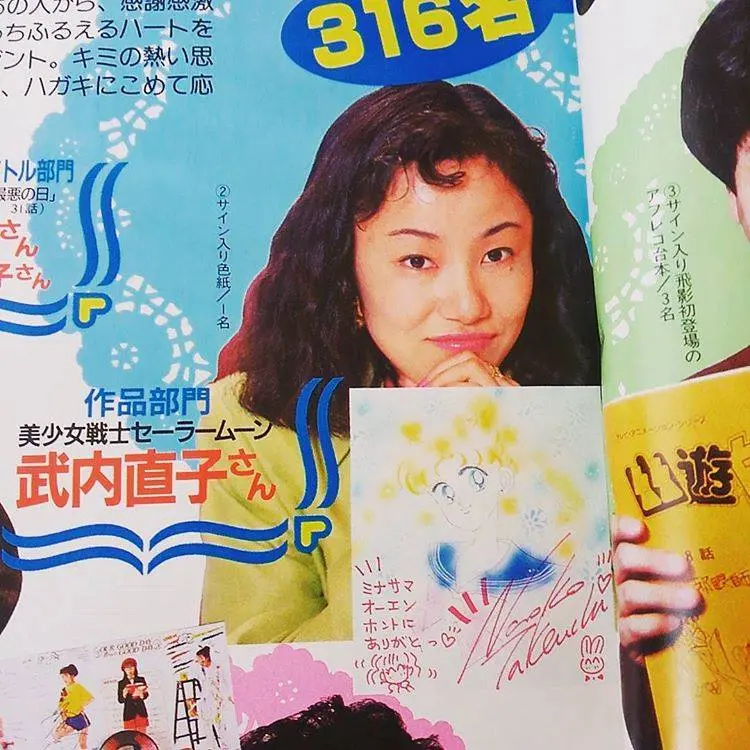 の人から、感謝感激
っちふるえるハートを
ント。キミの熱い思
、ハガキにこめて応
316名
トル部門
悪の日」
31話)
さん
子さん
②サイン入り色紙/1名
③サイン入り飛影初登場の
アフレコ台本/3名
作品部門
美少女戦士セーラームーン
武内直子さん
ミナサマ
オーエン
ホントに
ありがとっ♡
Naoko
Takeuchi
テレビ・アニメーション・シリーズ
幽遊
8話
OUR GOOD DAY